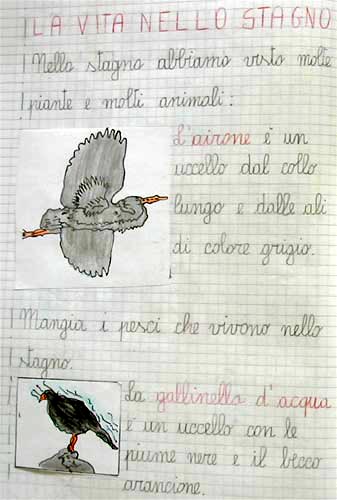 LA VITA NELLO STAGNO
Nello stagno abbiamo visto molte
piante e molti animali:
L'airone è un
uccello dal collo
lungo e dalle ali
di colore grigio.
Mangia i pesci che vivono nello
stagno.
La gallinella d'acqua
è un uccello con le
piume nere e il becco
arancione.